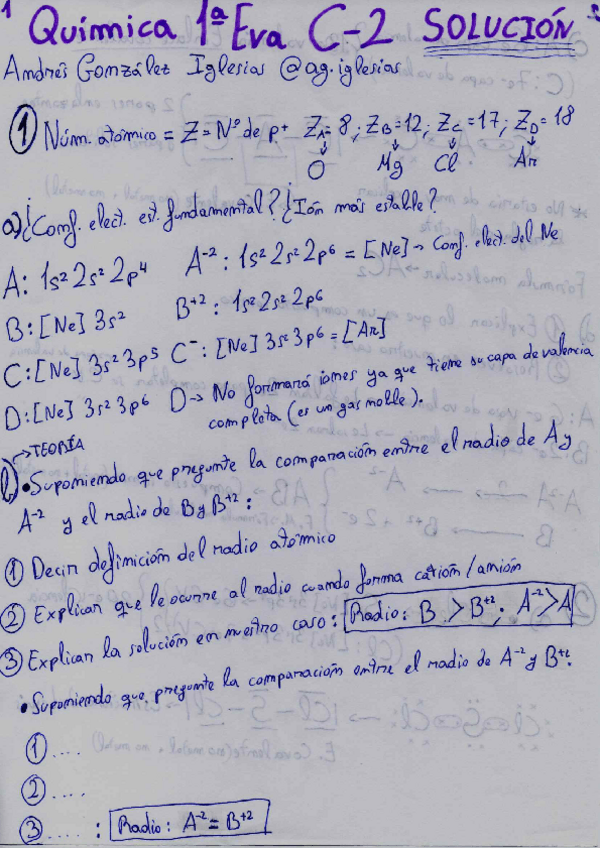 1 Química 1ª Eva C-2 SOLUCIÓN
Andrés González Iglesias @ag.iglesias
① Núm. atómico = Z = Nº de p⁺ Z_A = 8 ; Z_B = 12 ; Z_C = 17 ; Z_D = 18
↓ O ↓ Mg ↓ Cl ↓ Ar
a) ¿Conf. elect. est. fundamental? ¿Ión más estable?
A: 1s² 2s² 2p⁴ A⁻² : 1s² 2s² 2p⁶ = [Ne] → Conf. elect. del Ne
B: [Ne] 3s² B⁺² : 1s² 2s² 2p⁶
C: [Ne] 3s² 3p⁵ C⁻ : [Ne] 3s² 3p⁶ = [Ar]
D: [Ne] 3s² 3p⁶ D → No formará iones ya que tiene su capa de valencia
completa (es un gas noble).
→ TEORÍA
b) • Suponiendo que pregunte la comparación entre el radio de A y
A⁻² y el radio de B y B⁺² :
① Decir definición del radio atómico
② Explicar que le ocurre al radio cuando forma catión/anión
③ Explicar la solución en nuestro caso : Radio: B > B⁺² ; A⁻² > A
• Suponiendo que pregunte la comparación entre el radio de A⁻² y B⁺² :
① ....
② ....
③ .... : Radio: A⁻² = B⁺²